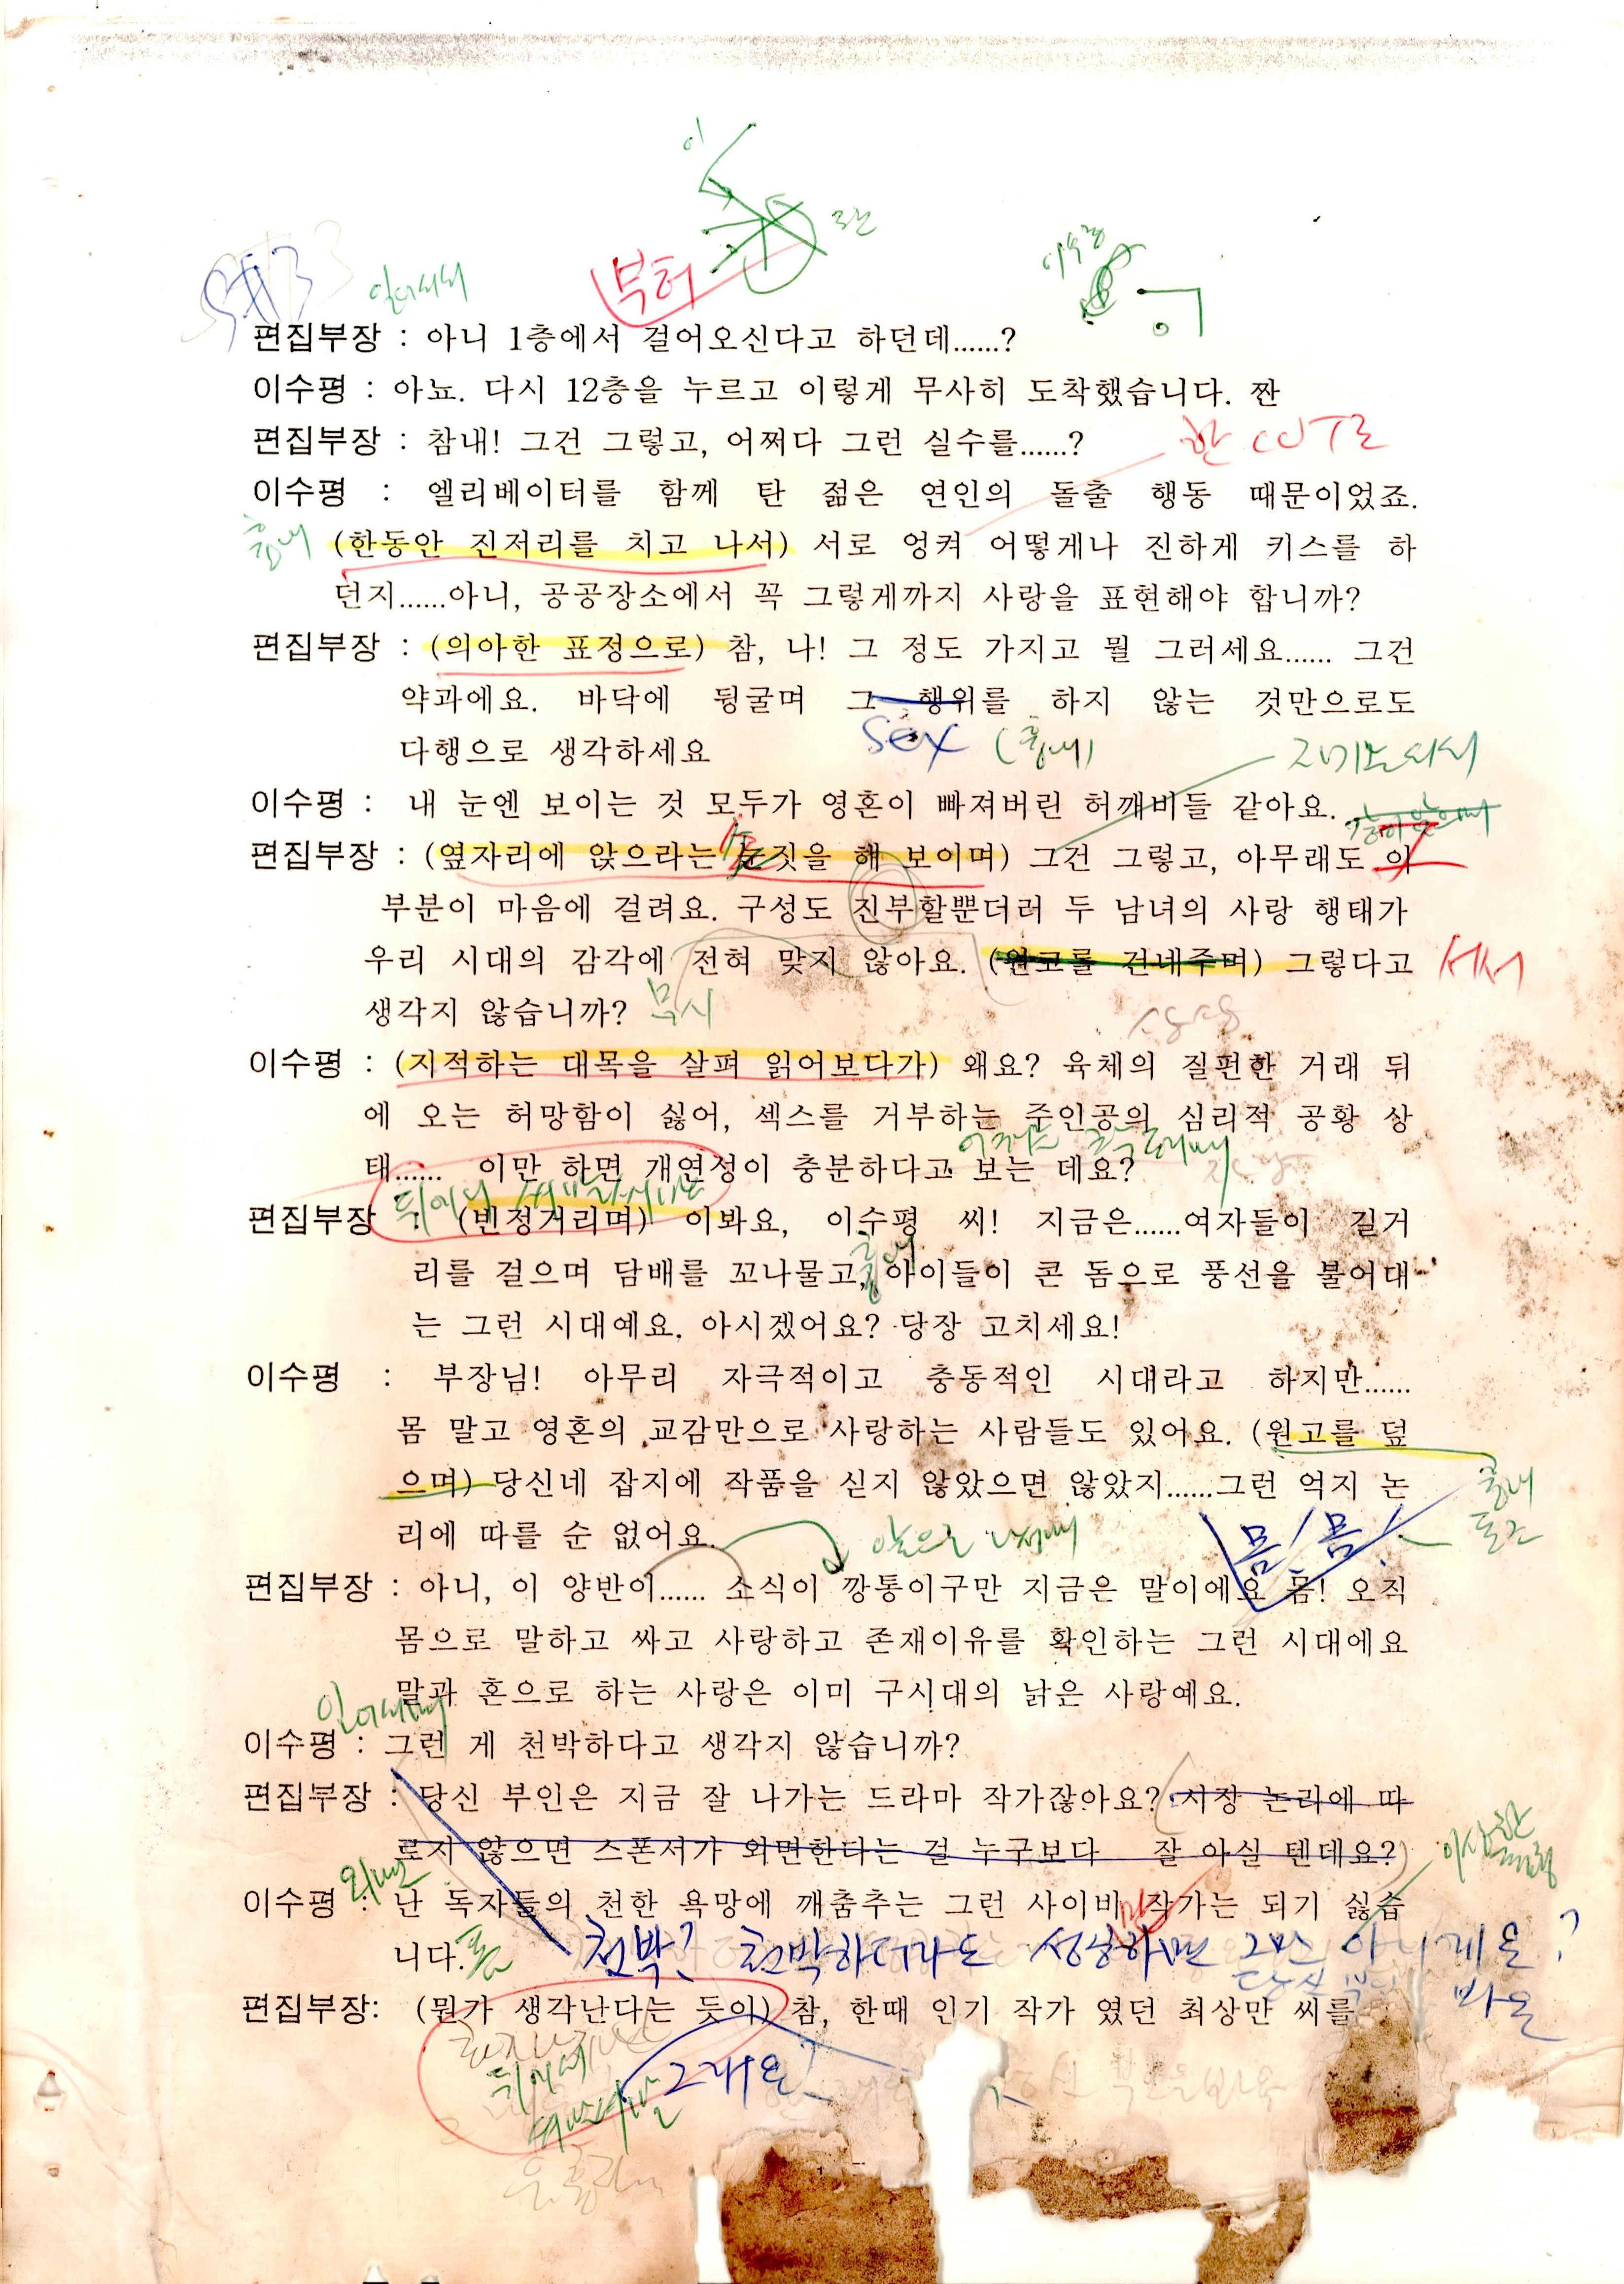 S#33
일어서서
부허
한 CUT로
편집부장 : 아니 1층에서 걸어오신다고 하던데......?
이수평 : 아뇨. 다시 12층을 누르고 이렇게 무사히 도착했습니다. 짠
편집부장 : 참내! 그건 그렇고, 어쩌다 그런 실수를......?
이수평 : 엘리베이터를 함께 탄 젊은 연인의 돌출 행동 때문이었죠.
흉내
(한동안 진저리를 치고 나서) 서로 엉켜 어떻게나 진하게 키스를 하
던지......아니, 공공장소에서 꼭 그렇게까지 사랑을 표현해야 합니까?
편집부장 : (의아한 표정으로) 참, 나! 그 정도 가지고 뭘 그러세요...... 그건
약과에요. 바닥에 뒹굴며 그 행위를 하지 않는 것만으로도
sex (흉내)
다행으로 생각하세요
이수평 : 내 눈엔 보이는 것 모두가 영혼이 빠져버린 허깨비들 같아요.
편집부장 : (옆자리에 앉으라는 눈짓을 해 보이며) 그건 그렇고, 아무래도 이
부분이 마음에 걸려요. 구성도 진부할뿐더러 두 남녀의 사랑 행태가
우리 시대의 감각에 전혀 맞지 않아요. (원고를 건네주며) 그렇다고
서서
생각지 않습니까?
무시
이수평 : (지적하는 대목을 살펴 읽어보다가) 왜요? 육체의 질펀한 거래 뒤
에 오는 허망함이 싫어, 섹스를 거부하는 주인공의 심리적 공황 상
태...... 이만 하면 개연성이 충분하다고 보는 데요?
편집부장 : (빈정거리며) 이봐요, 이수평 씨! 지금은......여자들이 길거
리를 걸으며 담배를 꼬나물고, 아이들이 콘 돔으로 풍선을 불어대
는 그런 시대예요. 아시겠어요? 당장 고치세요!
이수평 : 부장님! 아무리 자극적이고 충동적인 시대라고 하지만......
몸 말고 영혼의 교감만으로 사랑하는 사람들도 있어요. (원고를 덮
으며) 당신네 잡지에 작품을 싣지 않았으면 않았지......그런 억지 논
흉내
리에 따를 순 없어요.
몸/몸!
편집부장 : 아니, 이 양반이...... 소식이 깡통이구만 지금은 말이에요 몸! 오직
몸으로 말하고 싸고 사랑하고 존재이유를 확인하는 그런 시대에요
말과 혼으로 하는 사랑은 이미 구시대의 낡은 사랑예요.
이수평 : 그런 게 천박하다고 생각지 않습니까?
편집부장 : 당신 부인은 지금 잘 나가는 드라마 작가잖아요? 시장 논리에 따
르지 않으면 스폰서가 외면한다는 걸 누구보다 잘 아실 텐데요?
이수평 : 난 독자들의 천한 욕망에 깨춤추는 그런 사이비 작가는 되기 싫습
니다.
천박? 천박하더라도 성공하면 그만 아니에요?
편집부장: (뭔가 생각난다는 듯이) 참, 한때 인기 작가 였던 최상만 씨를
그래요?